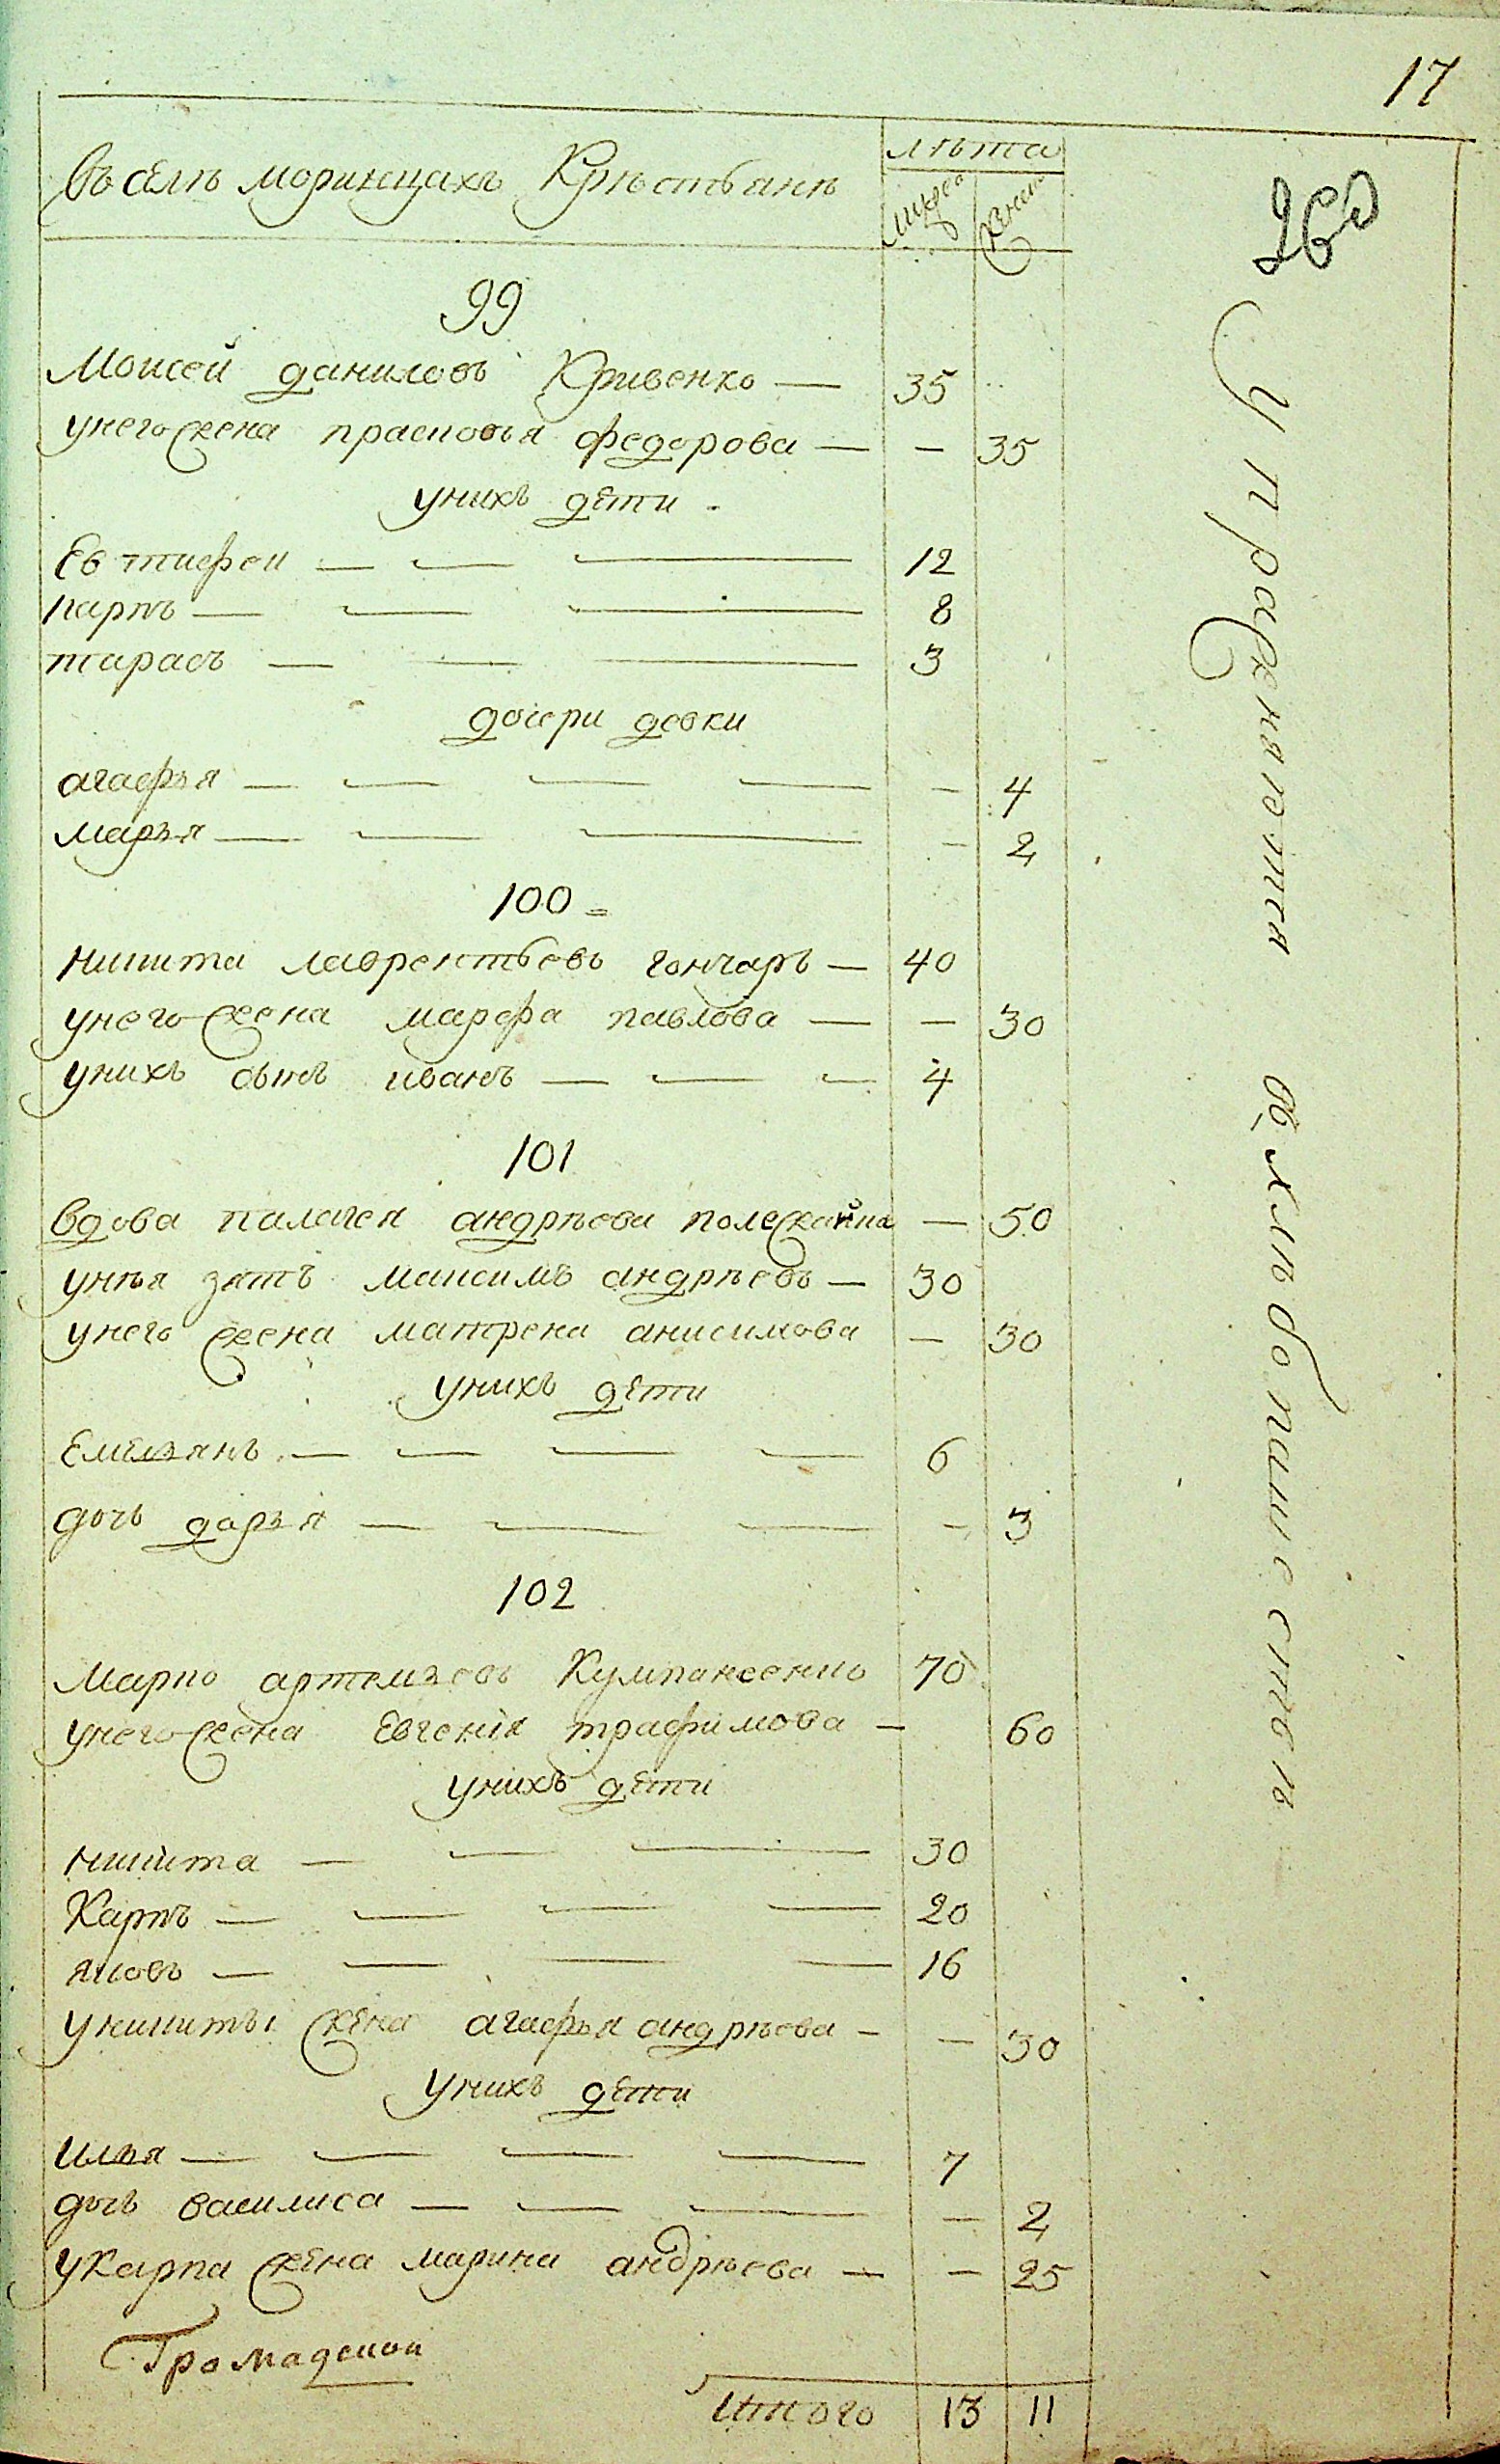 17
260
въ селѣ моринцахъ Крѣстьянѣ
лѣта
мужес
женс
99
Моисей даниловъ Кривенко — 35
унего жена прасковья федорова — — 35
унихъ дети
Евтифеи — — — 12
карпъ — — — 8
тарасъ — — — 3
дочери девки
агафья — — — — — 4
марья — — — — 2
100
никита лаврентьевъ гончаръ — 40
унего жена марфа павлова — — 30
унихъ сынъ иванъ — — — 4
101
вдова палагея андрѣева полежайка — 50
унѣя зять максимъ андрѣевъ — 30
унего жена матрена анисимова — 30
унихъ дети
Емельянъ — — — — 6
дочь дарья — — — — 3
102
марко артемьевъ Кумпансенко 70
унего жена Евгенія трафимова — 60
унихъ дети
никита — — — 30
Карпъ — — — — 20
яковъ — — — — 16
уникиты жена агафья андрѣева — — 30
унихъ дети
илья — — — — 7
дочь василиса — — — — 2
укарпа жена марина андрѣева — — 25
Громадской
Итого 13 11
Упражняется
хлебопашеством